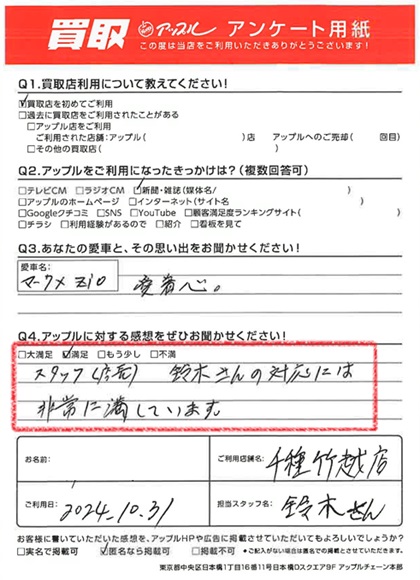 買取 アップル アンケート用紙
この度は当店をご利用いただきありがとうございます!
Q1.買取店利用について教えてください!
☑買取店を初めてご利用
□過去に買取店をご利用されたことがある
□アップル店をご利用
ご利用された店舗:アップル( )店 アップルへのご売却( 回目)
□その他の買取店( )
Q2.アップルをご利用になったきっかけは?(複数回答可)
□テレビCM □ラジオCM ☑新聞・雑誌(媒体名/ )
□アップルのホームページ □インターネット(サイト名 )
□Googleクチコミ □SNS □YouTube □顧客満足度ランキングサイト( )
□チラシ □利用経験があるので □紹介 □看板を見て
Q3.あなたの愛車と、その思い出をお聞かせください!
愛車名:
マークX Zio 愛着心。
Q4.アップルに対する感想をぜひお聞かせください!
□大満足 ☑満足 □もう少し □不満
スタッフ(店長) 鈴木さんの対応には
非常に満しています
お名前:
ご利用店舗名: 千種竹越店
ご利用日: 2024.10.31
担当スタッフ名: 鈴木さん
お客様に書いていただいた感想を、アップルHPや広告に掲載させていただいてもよろしいでしょうか?
□実名で掲載可 ☑匿名なら掲載可 □掲載不可 *ご記入がない場合は匿名での掲載とさせていただきます。
東京都中央区日本橋1丁目16番11号日本橋Dスクエア9F アップルチェーン本部